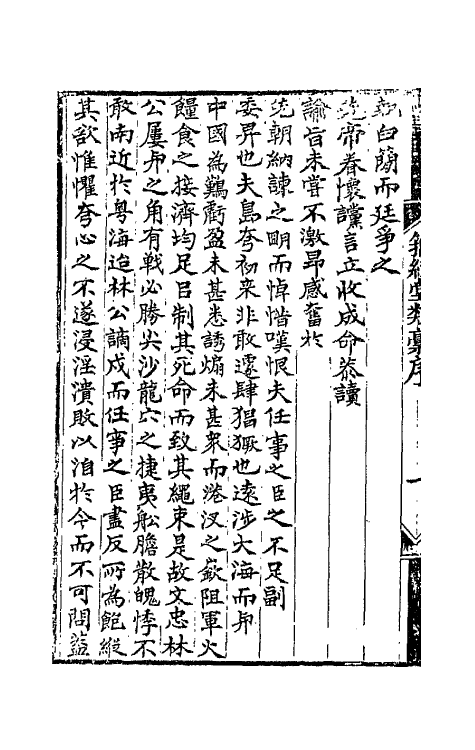 白蕳而廷爭之
先帝眷懷讜言立收成命恭讀
諭旨未嘗不激昻感奮於
先朝納諫之眀而悼惜嘆恨夫任事之臣之不足副
委畀也夫島夸初來非敢遽肆猖獗也遠涉大海而與
中國為難虧盈未甚悉誘煽未甚衆而港汊之嶔阻軍火
糧食之接濟均足㠯制其死命而致其繩束是故文忠林
公屢與之角有戰必勝尖沙龍穴之捷夷舩膽散魄悸不
敢南近於粤海迨林公謫戍而任事之臣盡反所為飽縱
其欲惟懼夸心之不遂浸淫潰敗以洎於今而不可問蓋
類稾序
一